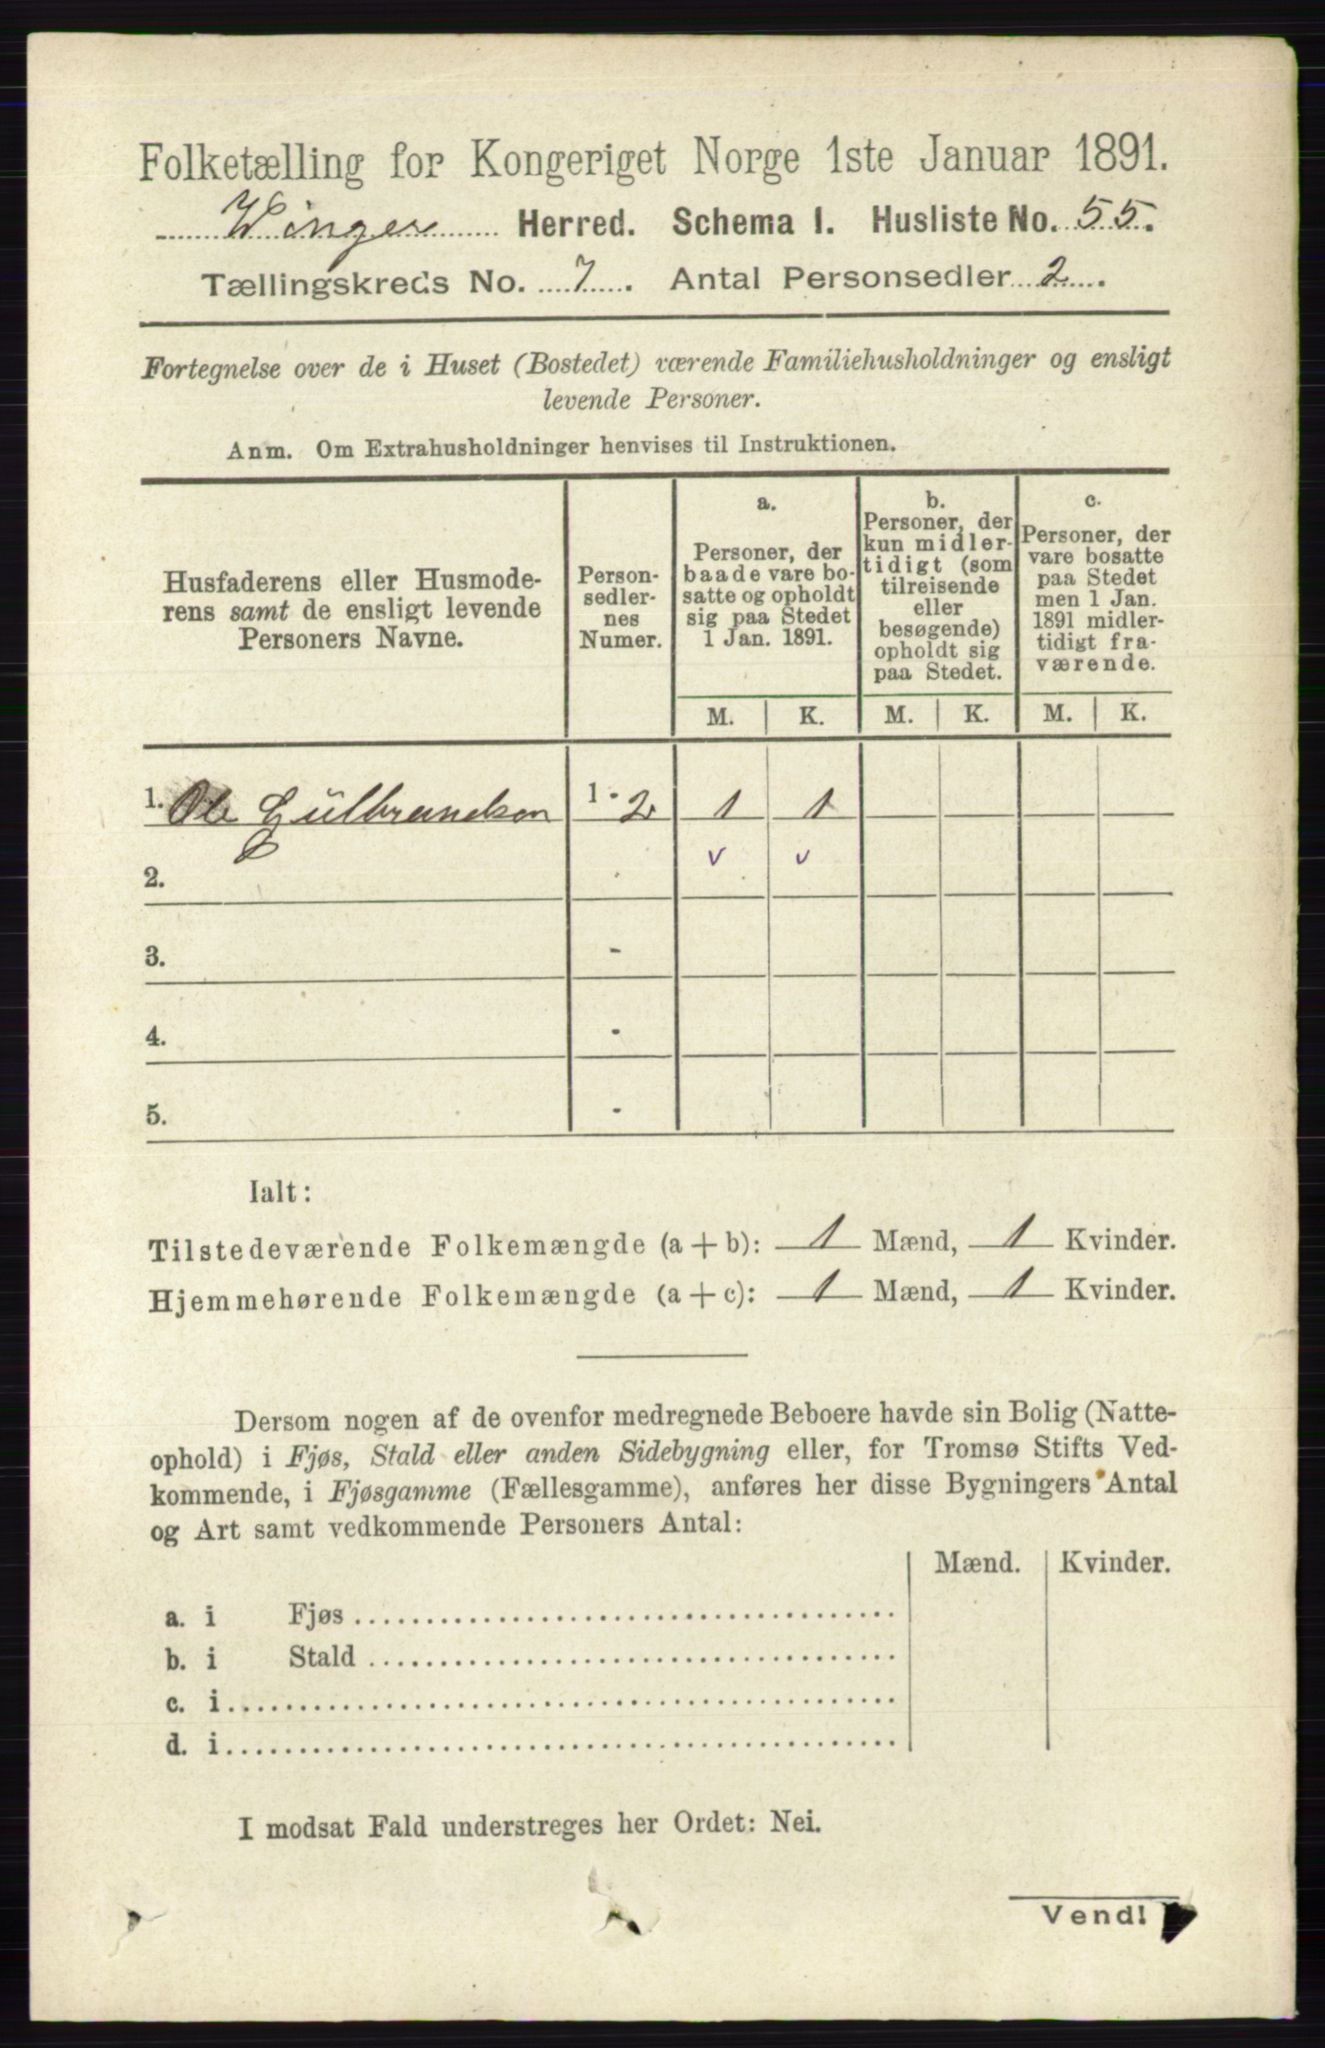 Folketælling for Kongeriget Norge 1ste Januar 1891.
Winger Herred. Schema I. Husliste No. 55.
Tællingskreds No. 7. Antal Personsedler 2.
Fortegnelse over de i Huset (Bostedet) værende Familiehusholdninger og ensligt
levende Personer.
Anm. Om Extrahusholdninger henvises til Instruktionen.
Husfaderens eller Husmode-
rens samt de ensligt levende
Personers Navne.
Person-
sedler-
nes
Numer.
a.
Personer, der
baade vare bo-
satte og opholdt
sig paa Stedet
1 Jan. 1891.
b.
Personer, der
kun midler-
tidigt (som
tilreisende
eller
besøgende)
opholdt sig
paa Stedet.
c.
Personer, der
vare bosatte
paa Stedet
men 1 Jan.
1891 midler-
tidigt fra-
værende.
M. K. M. K. M. K.
1. Ole Gulbrandsen 1 - 2 1 1
v v
2.
3. -
4. -
5. -
Ialt:
Tilstedeværende Folkemængde (a + b): 1 Mænd, 1 Kvinder.
Hjemmehørende Folkemængde (a + c): 1 Mænd, 1 Kvinder.
Dersom nogen af de ovenfor medregnede Beboere havde sin Bolig (Natte-
ophold) i Fjøs, Stald eller anden Sidebygning eller, for Tromsø Stifts Ved-
kommende, i Fjøsgamme (Fællesgamme), anføres her disse Bygningers Antal
og Art samt vedkommende Personers Antal:
Mænd. Kvinder.
a. i Fjøs
b. i Stald
c. i
d. i
I modsat Fald understreges her Ordet: Nei.
Vend!